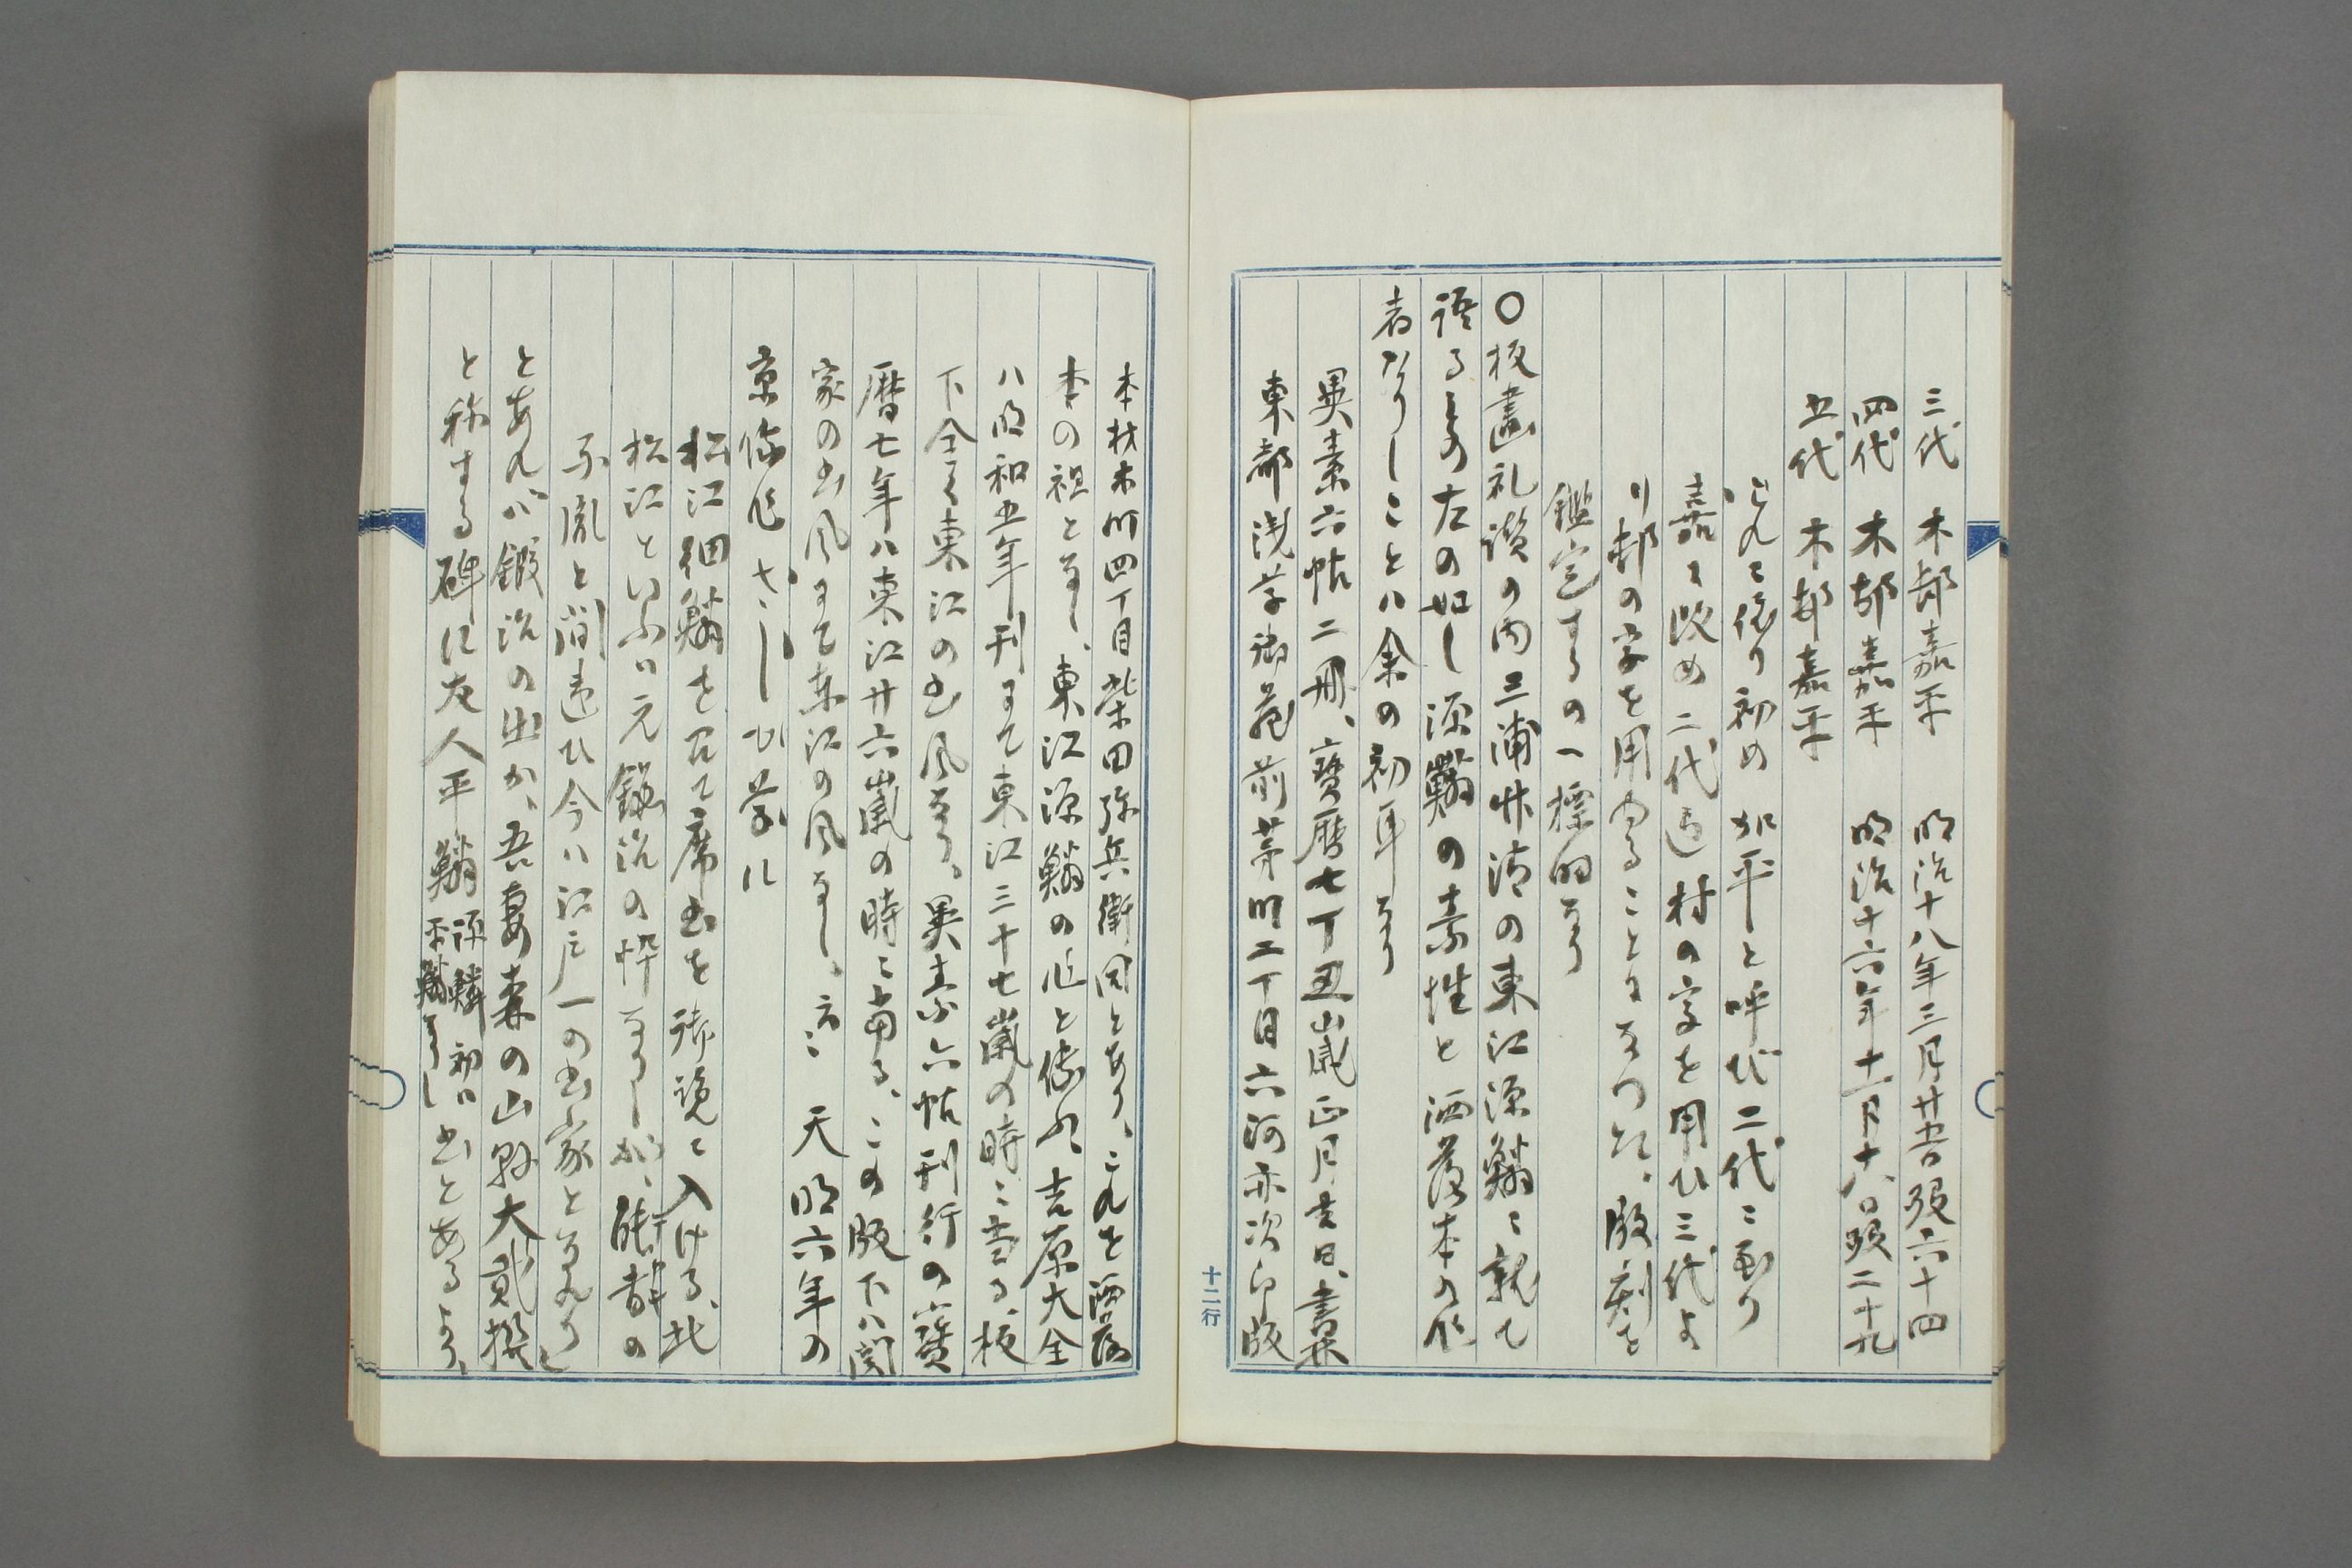 三代 木邨嘉平 明治十八年三月廿五日歿六十四
四代 木邨嘉平 明治十六年十一月十八日歿二十九
五代 木邨嘉平
これに依り初め加平と呼び二代に至り
嘉に改め二代迄村の字を用ひ三代よ
り邨の字を用ゆることになつた、版刻を
鑑定するの一標的なり
〇板畫礼讃の内三浦  の東江源鱗に就て
語るもの左の如し源鱗の素性と洒落本の作
者なりしことハ余の初耳なり
異素六帖二冊、寶暦七丁丑歳正月吉日、書林
東都浅草御蔵前茅町二丁目六河亦次郎版
本材木町四丁目柴田弥兵衛同とあり、これを洒落
本の祖となし、東江源鱗の作と傳ふ、吉原大全
ハ明和五年刊にて東江三十七歳の時に当る、板
下全く東江の書風なり。異素六帖刊行の寶
暦七年ハ東江廿六歳の時に當る、この版下ハ関
家の書風にて東江の風なし、 天明六年の
京傳作 ひ草に
松江細鱗を召て席書を御覧に入ける、此
松江といふハ元鍛冶の忰なりしが、 の
子胤と間違ひ今ハ江戸一の書家となれり
とあれバ鍛冶の出か、吾妻森の山縣大貳撰
と称する碑に友人平鱗源鱗初ハ平鱗なりし書とあるより、
十二行